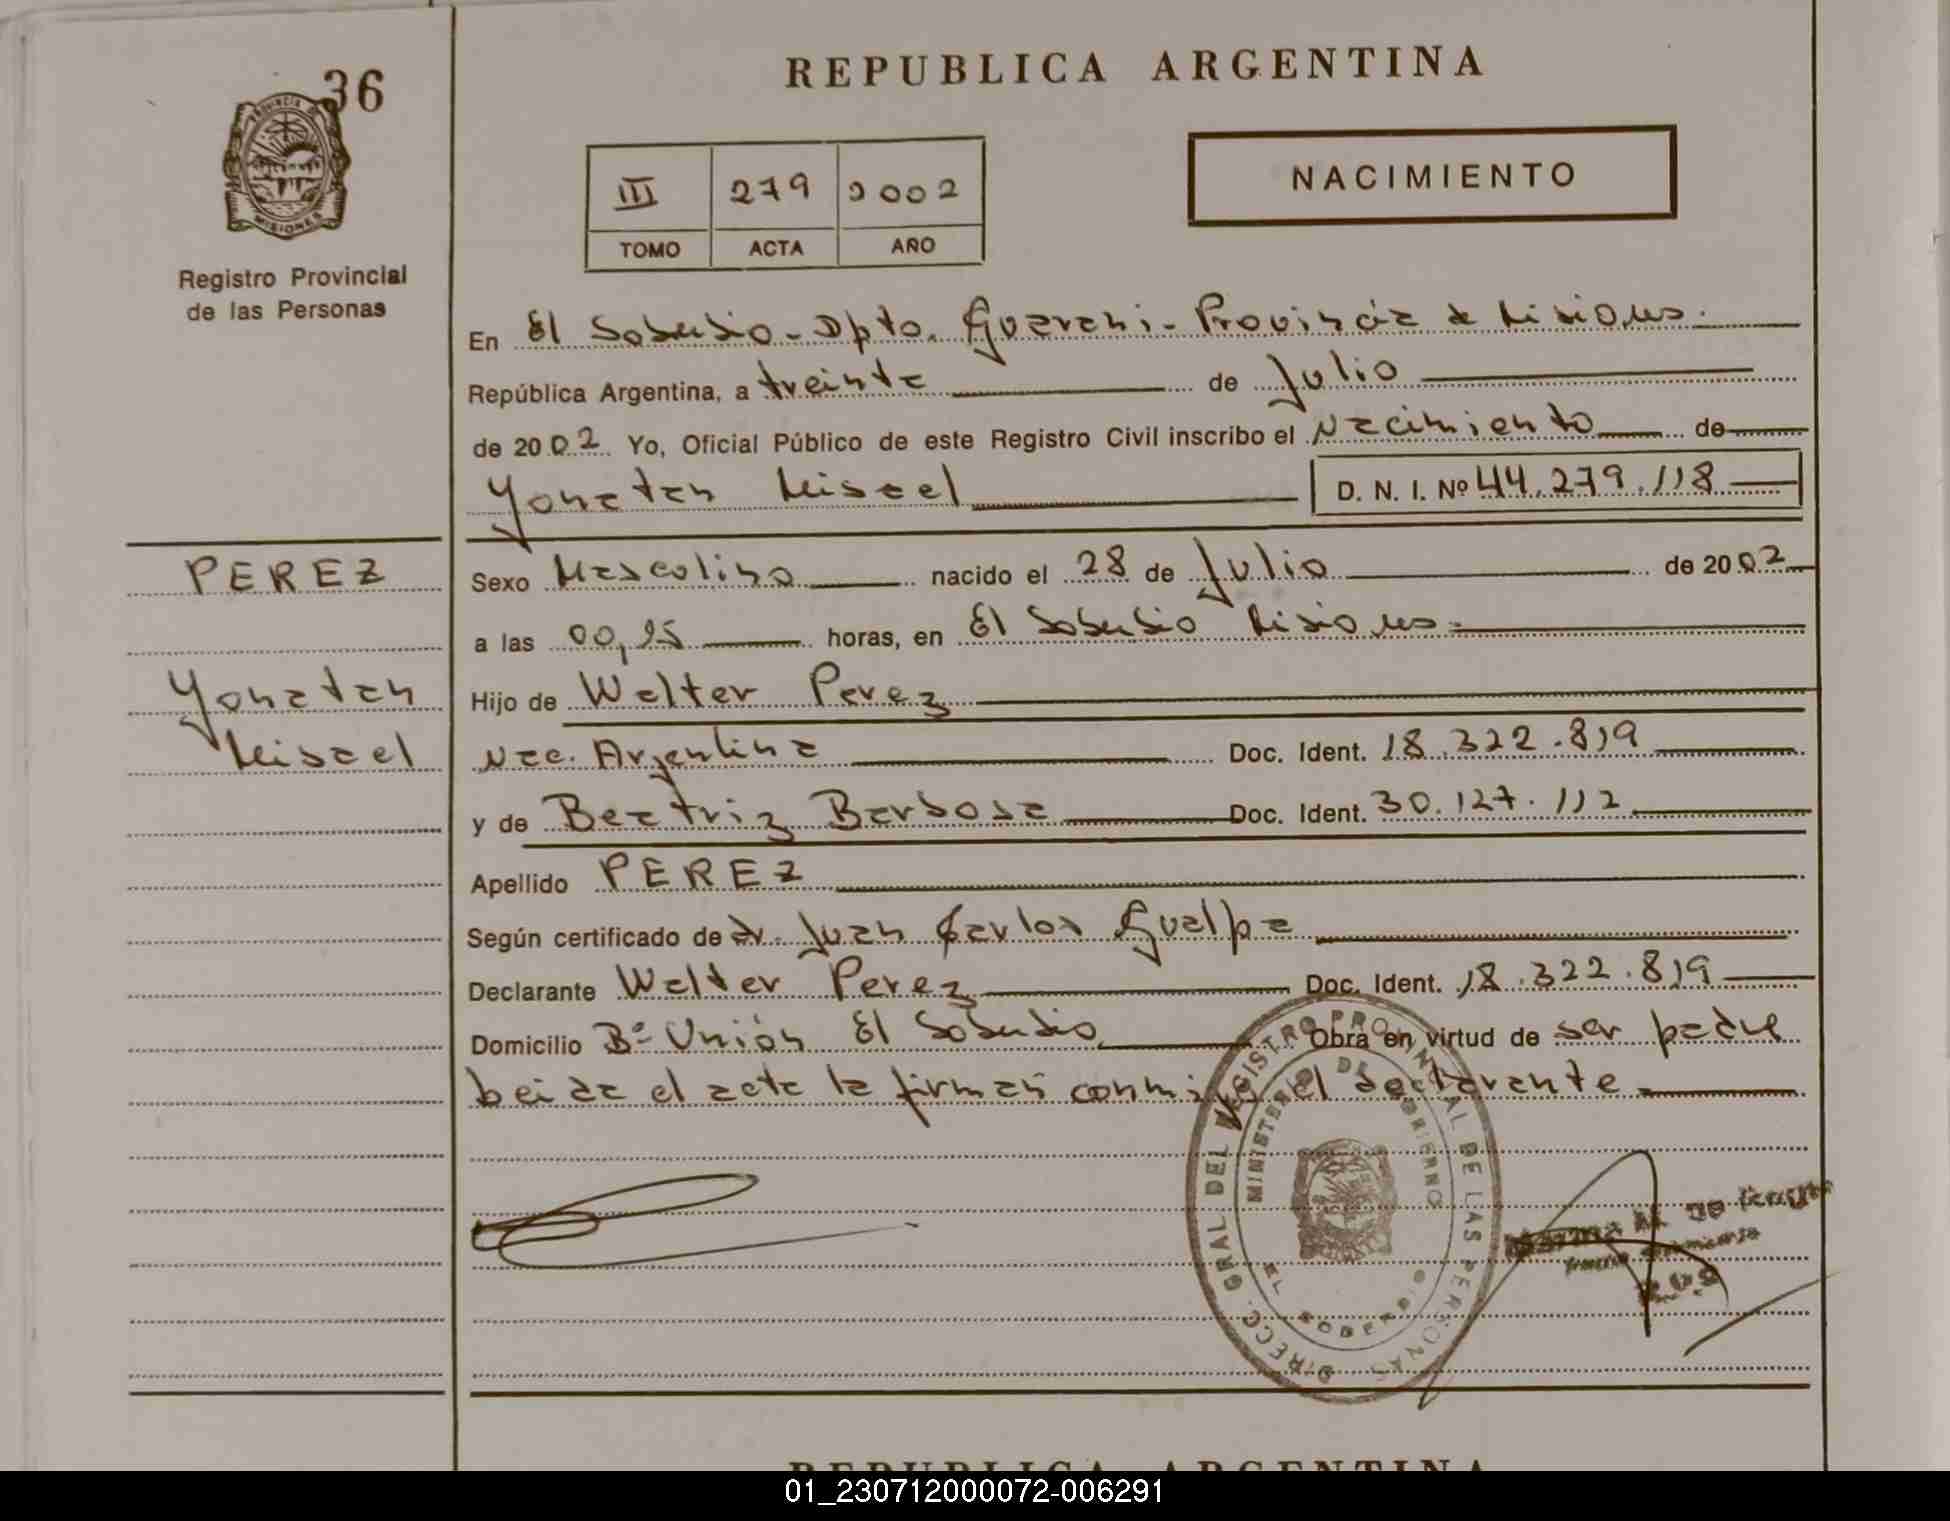 36
PROVINCIA DE
MISIONES
Registro Provincial
de las Personas
REPUBLICA ARGENTINA
III 279 2002
TOMO ACTA AÑO
NACIMIENTO
En El Soberbio - Dpto. Guarani - Provincia de Misiones.
República Argentina, a treinta de Julio
de 2002 Yo, Oficial Público de este Registro Civil inscribo el Nacimiento de
Yonatan Misael D. N. I. Nº 44.279.118
PEREZ
Yonatan
Misael
Sexo Masculino nacido el 28 de Julio de 2002
a las horas, en El Soberbio Misiones.
Hijo de Walter Perez
Nac. Argentina Doc. Ident. 18.322.819
y de Beatriz Barbosa Doc. Ident. 30.127.112
Apellido PEREZ
Según certificado de Dr. Juan Carlos Gualpa
Declarante Walter Perez Doc. Ident. 18.322.819
Domicilio Bº Unión El Soberbio Obra en virtud de ser padre
Leida el acta la firman conmigo el declarante
DIRECC. GRAL DEL REGISTRO PROVINCIAL DE LAS PERSONAS
MINISTERIO DE GOBIERNO
EL SOBERBIO
REPUBLICA ARGENTINA
01_230712000072-006291